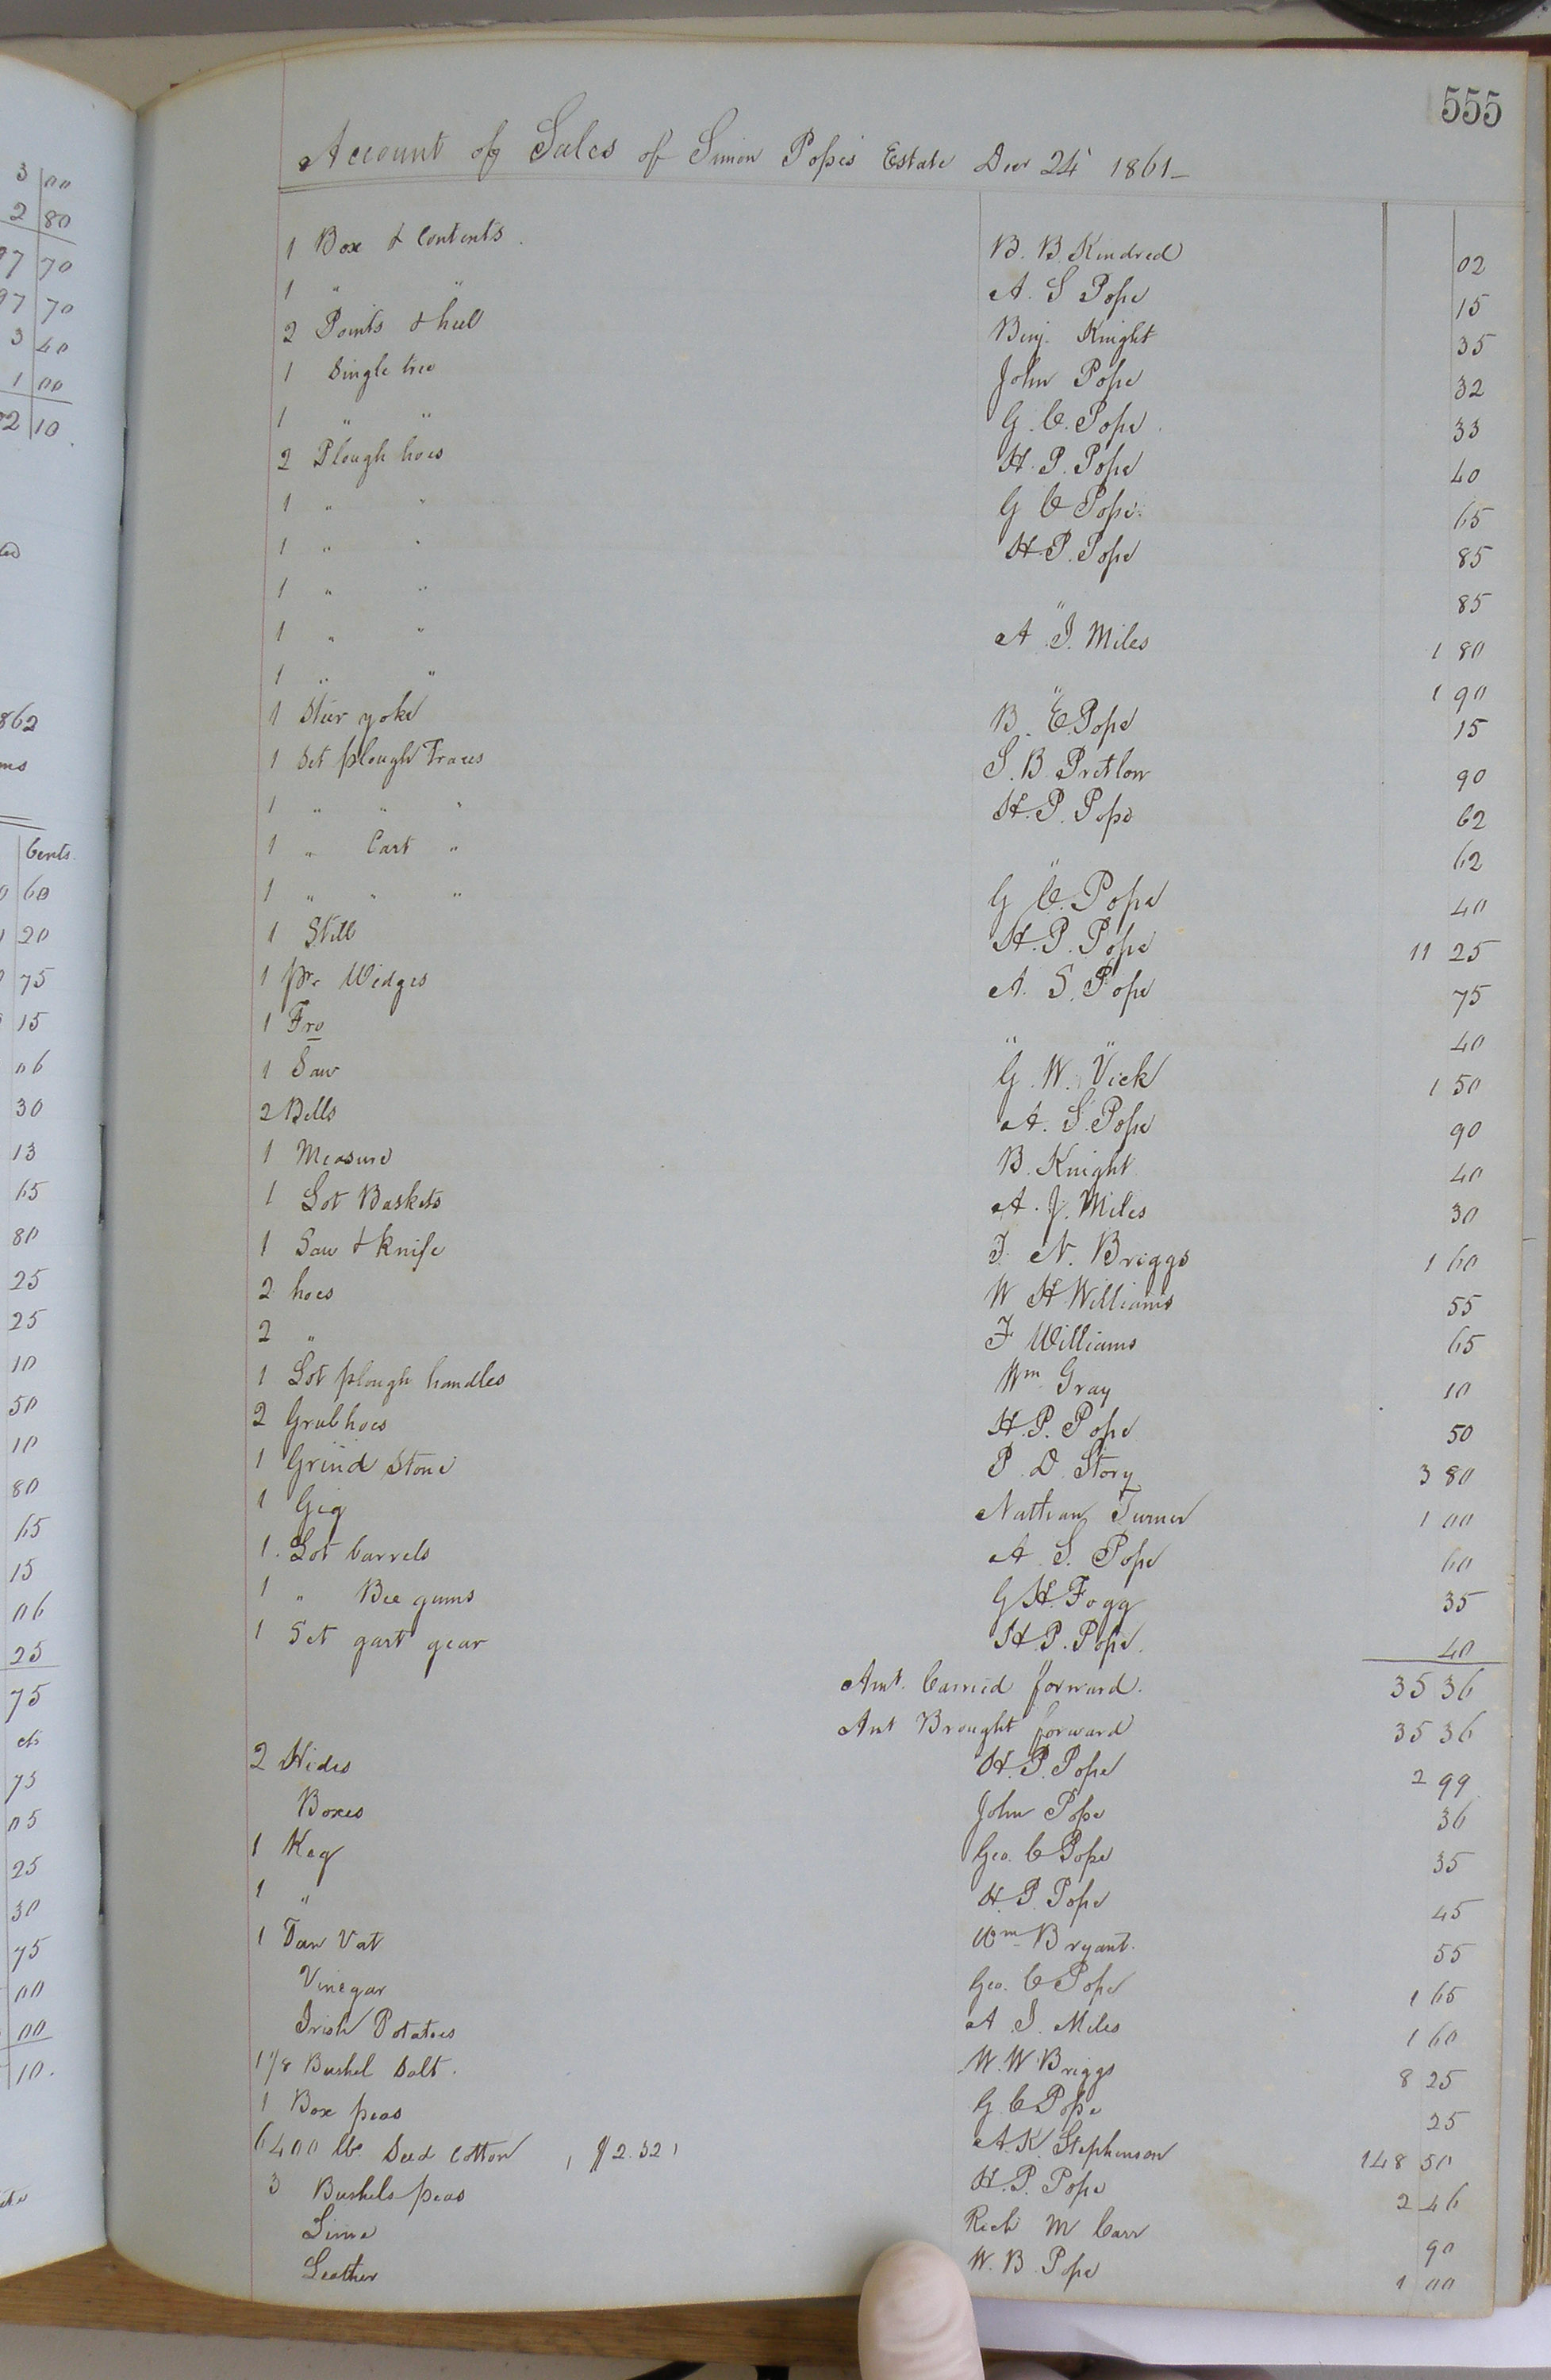 3 00
2 80
97 70
97 70
3 40
1 00
02 10.
862
Cents.
60
20
75
15
06
30
13
65
80
25
25
10
50
10
80
65
15
06
25
75
cts
75
05
25
30
75
00
00
10.
555
Account of Sales of Simon Pope's Estate Decr 24th 1861-
1 Box & Contents . B. B. Kindred 02
1 " " A. S Pope 15
2 Points & heel Benj. Knight 35
1 Single tree John Pope 32
1 " " G. C. Pope 33
2 Plough hoes H. P. Pope 40
1 " " G C Pope 65
1 " " H. P. Pope 85
1 " " " 85
1 " " A J. Miles 1 80
1 " " " 1 90
1 Steer yoke B. E Pope 15
1 Set plough Traces S. B. Pretlow 90
1 " " " H. P. Pope 62
1 " Cart " " 62
1 " " " G C. Pope 40
1 Still H. P. Pope 11 25
1 pr. Wedges A. S. Pope 75
1 Fro " " 40
1 Saw G. W. Vick 1 50
2 Bells A. S. Pope 90
1 Measure B. Knight 40
1 Lot Baskets A. J. Miles 30
1 Saw & Knife J. N. Briggs 1 60
2 hoes W H Williams 55
2 " F Williams 65
1 Lot plough handles Wm Gray 10
2 Grub hoes H. P. Pope 50
1 Grind Stone P. D. Story 3 80
1 Gig Nathan Turner 1 00
1. Lot barrels A S. Pope 60
1 " Bee gums G H. Fogg 35
1 Set gart gear H P. Pope. 40
Amt. Carried forward. 35 36
Amt Brought forward 35 36
2 Hides H. P. Pope 2 99
Boxes John Pope 36
1 Keg Geo. C Pope 35
1 " H. P. Pope 45
1 Tan Vat Wm Bryant. 55
Vinegar Geo. C Pope 1 65
Irish Potatoes A J. Miles 1 60
1 1/8 Bushel Salt . W. W Briggs 8 25
1 Box peas G. C Pope 25
6400 lbs Seed Cotton , $2.32 A. K Stephenson 148 50
3 Bushels peas H. P. Pope 2 46
Lime Rich M Carr 90
Leather W. B. Pope 1 00